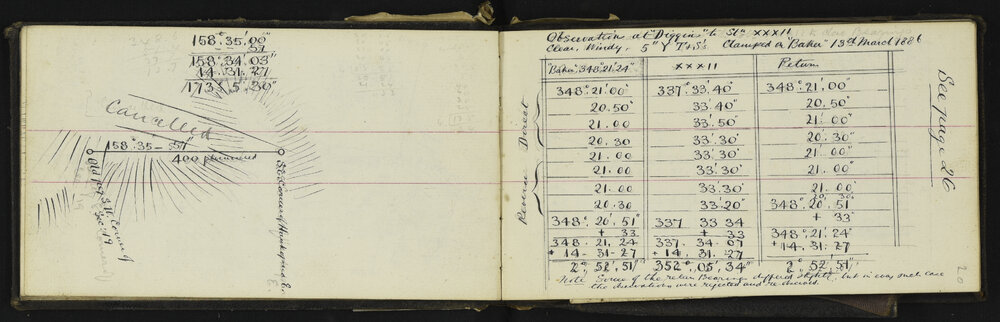 158°.35'.00"
- 57
158°.34'.03"
14.31.27
173°.5'.30"
Cancelled
158°.35-57
400
Old Peg S.W. Corner of
Sec. 19
S.E. Corner of
Observations at "Diggins" to Stn XXXII
Clear, Windy. 5" Y T & S's. Clamped on "Baker" 13th March 1886
"Baker" 348°.21'.24" XXXII Return
348°.21'.00" 337°.33'.40" 348°.21'.00"
20.50" 33'.40" 20.50"
21.00 33'.50" 21.00"
20.30 33'.30" 20.30"
21.00 33'.30" 21.00"
21.00 33'.30" 21.00"
21.00 33'.30" 21.00"
20.30 33'.20" 20'.30"
348°.20'.51" 337 33 34 348°.20.51
+ 33 + 33 + 33"
348.21.24 337.34.07 348°.21'.24"
+ 14-31-27 + 14.31.27 + 14-31.27
2°.52'.51" 352°.05'.34" 2°.52'.51"
Direct
Return
Note Some of the return Bearings differed slightly, but in every such case
the observations were rejected and re-observed.
See page 26
20